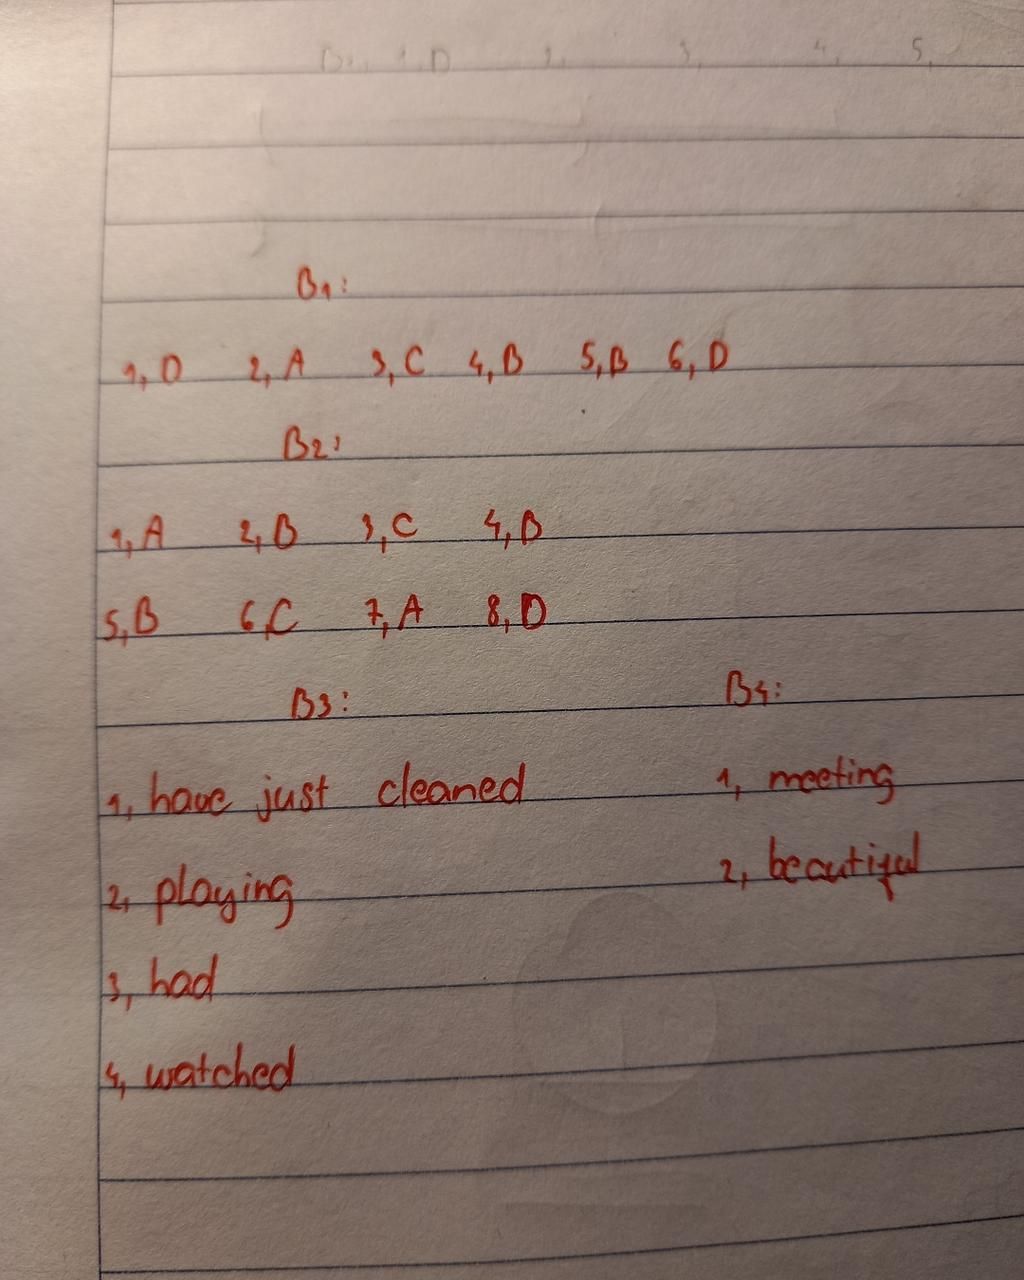 B1:
1, D 2, A 3, C 4, B 5, B 6, D
B2:
1, A 2, B 3, C 4, B
5, B 6, C 7, A 8, D
B3: B4:
1, have just cleaned 1, meeting
2, playing 2, beautiful
3, had
4, watched